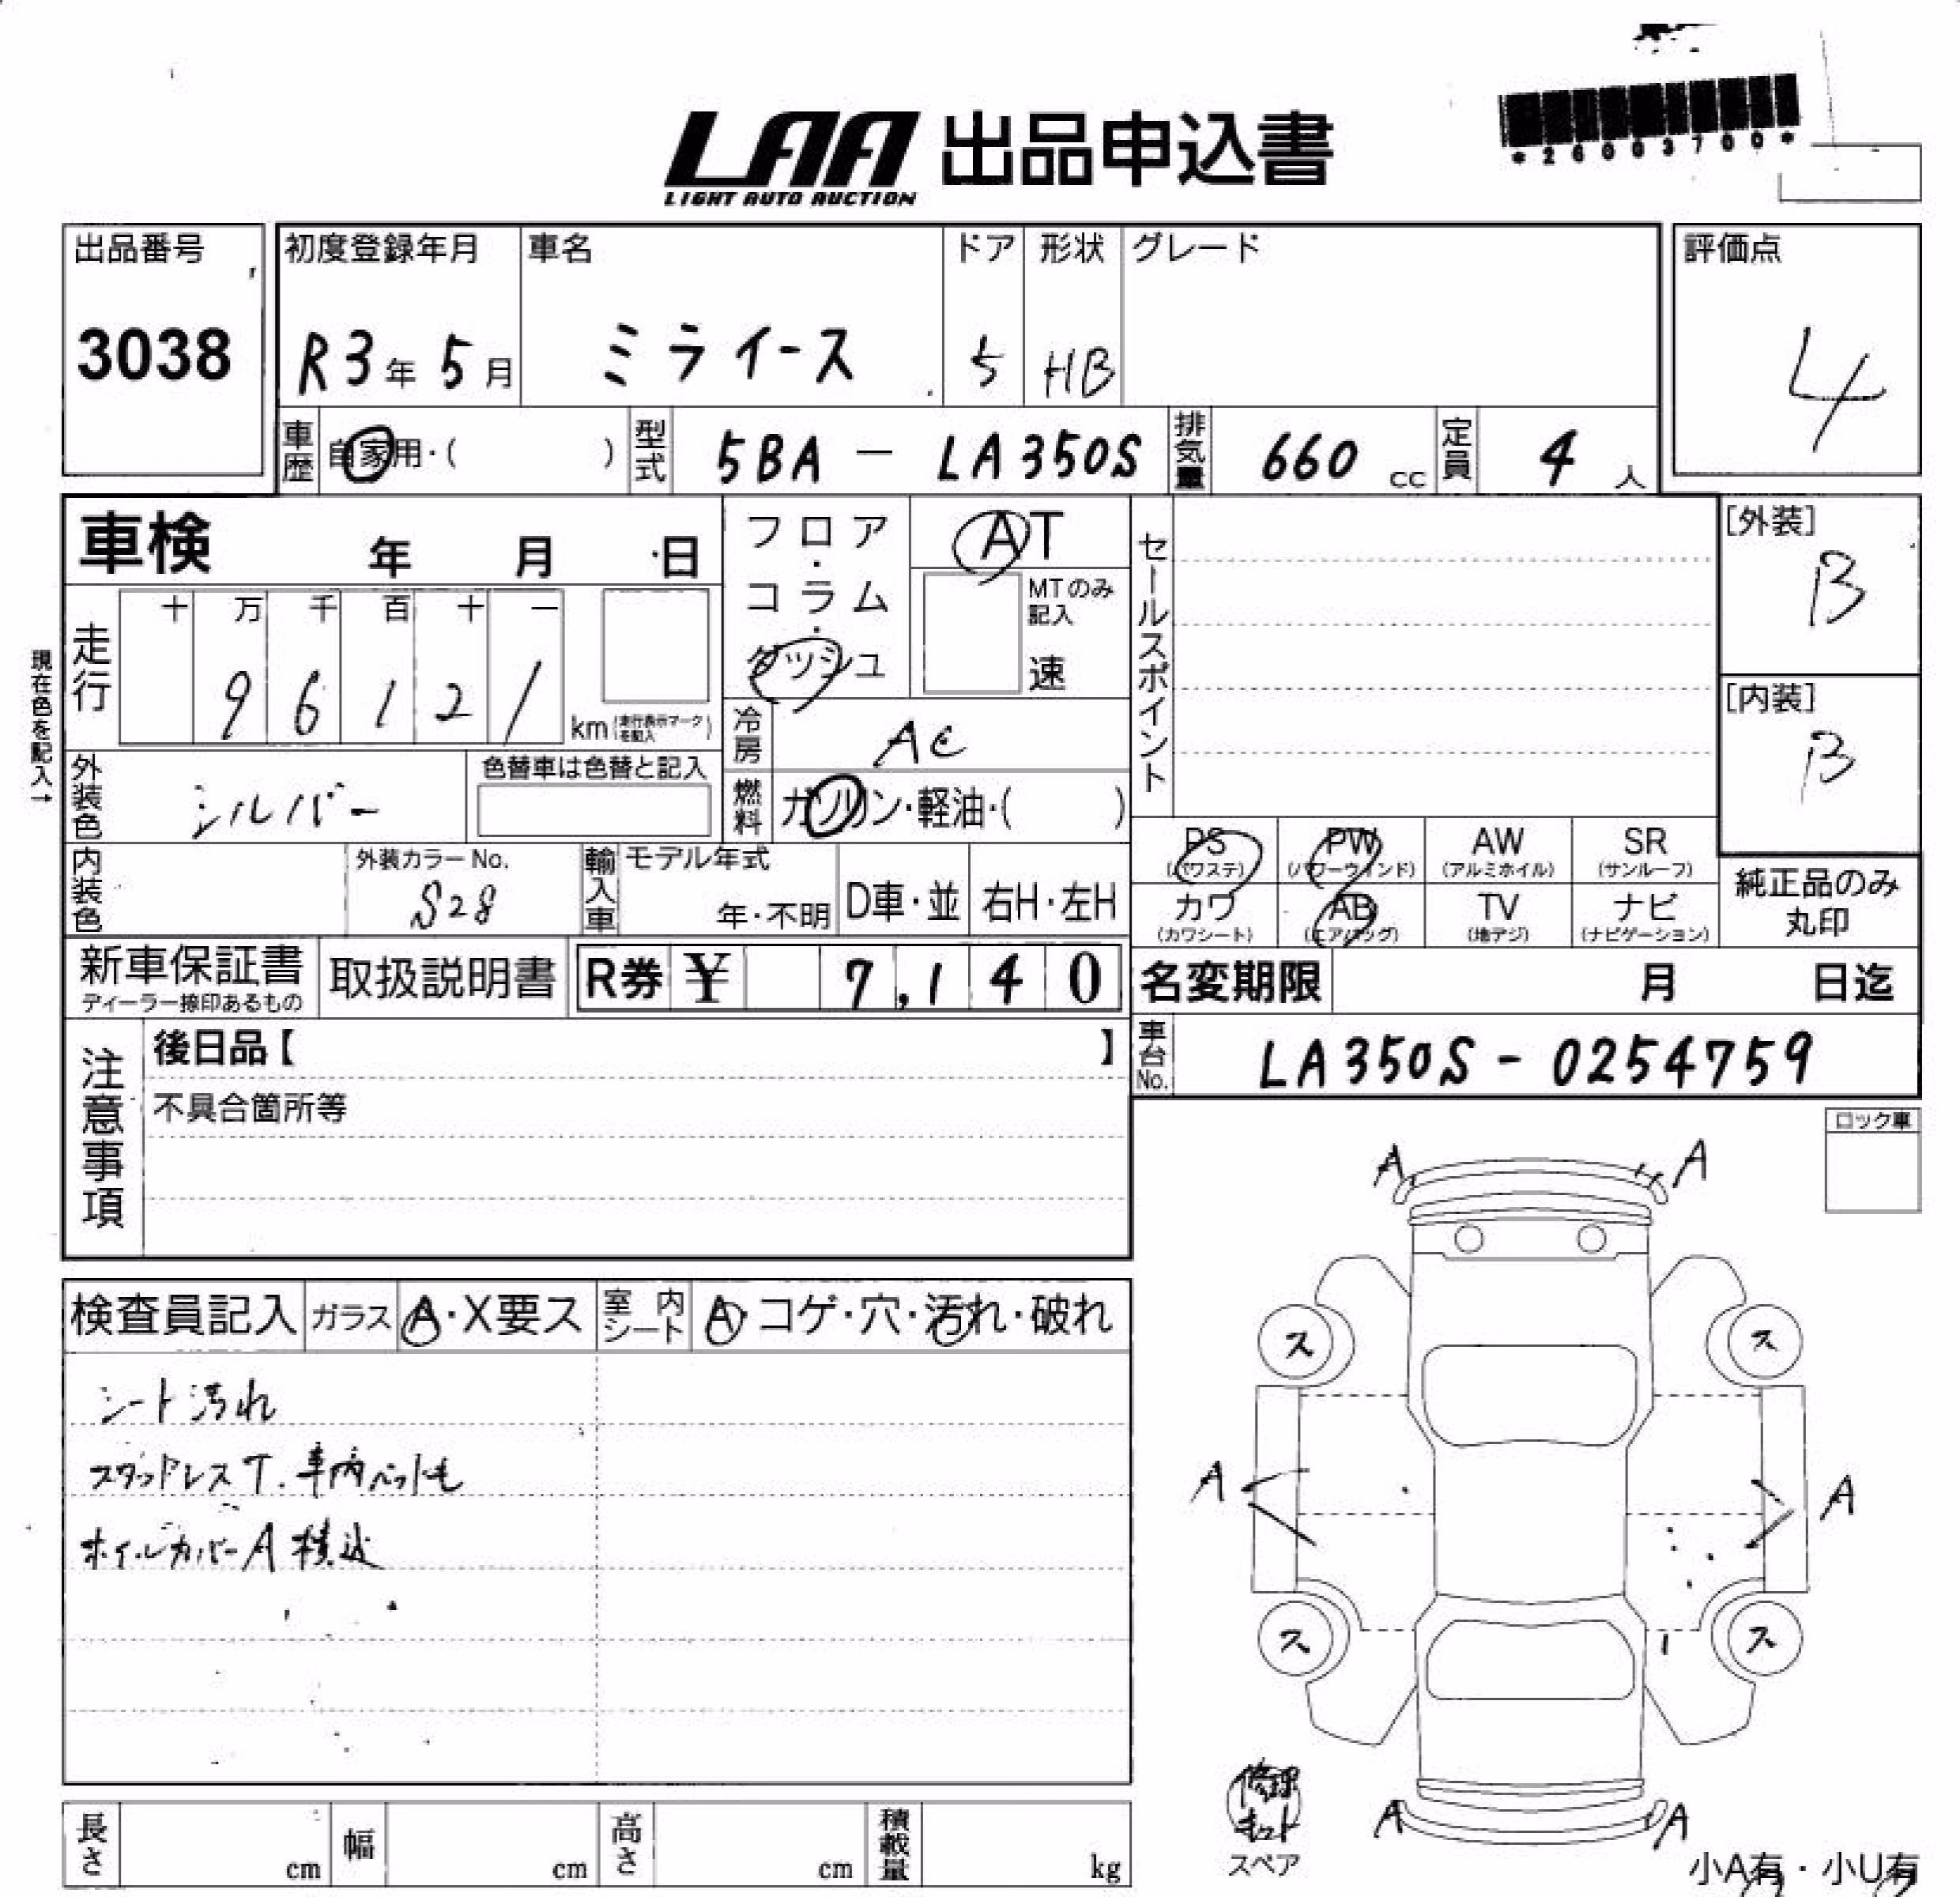 *26003700*
LAA 出品申込書
LIGHT AUTO AUCTION
出品番号
3038
初度登録年月
R3年 5月
車名
ミライース
ドア
5
形状
HB
グレード
評価点
4
車歴
自家用・( )
型式
5BA - LA350S
排気量
660 cc
定員
4 人
車検 年 月 日
フロア・コラム・ダッシュ
AT
MTのみ記入
速
セールスポイント
[外装]
B
[内装]
B
現在色を記入→
走行
十 万 千 百 十 一
9 6 1 2 1
km(走行表示マークを記入)
冷房
AC
外装色
シルバー
色替車は色替と記入
燃料
ガソリン・軽油・( )
内装色
外装カラーNo.
S28
輸入車
モデル年式
年・不明
D車・並
右H・左H
PS (パワステ)
PW (パワーウィンド)
AW (アルミホイル)
SR (サンルーフ)
カワ (カワシート)
AB (エアバッグ)
TV (地デジ)
ナビ (ナビゲーション)
純正品のみ丸印
新車保証書
ディーラー捺印あるもの
取扱説明書
R券 ¥ 7,140
名変期限 月 日迄
車台No.
LA350S - 0254759
注意事項
後日品【 】
不具合箇所等
ロック車
A A
ス ス
A A
ス ス
A A
検査員記入
ガラス
A・X要ス
室内シート
A・コゲ・穴・汚れ・破れ
シート汚れ
スタッドレスT.車内ペットも
ホイルカバーA 積込
修理キット
スペア
小A有・小U有
長さ cm
幅 cm
高さ cm
積載量 kg